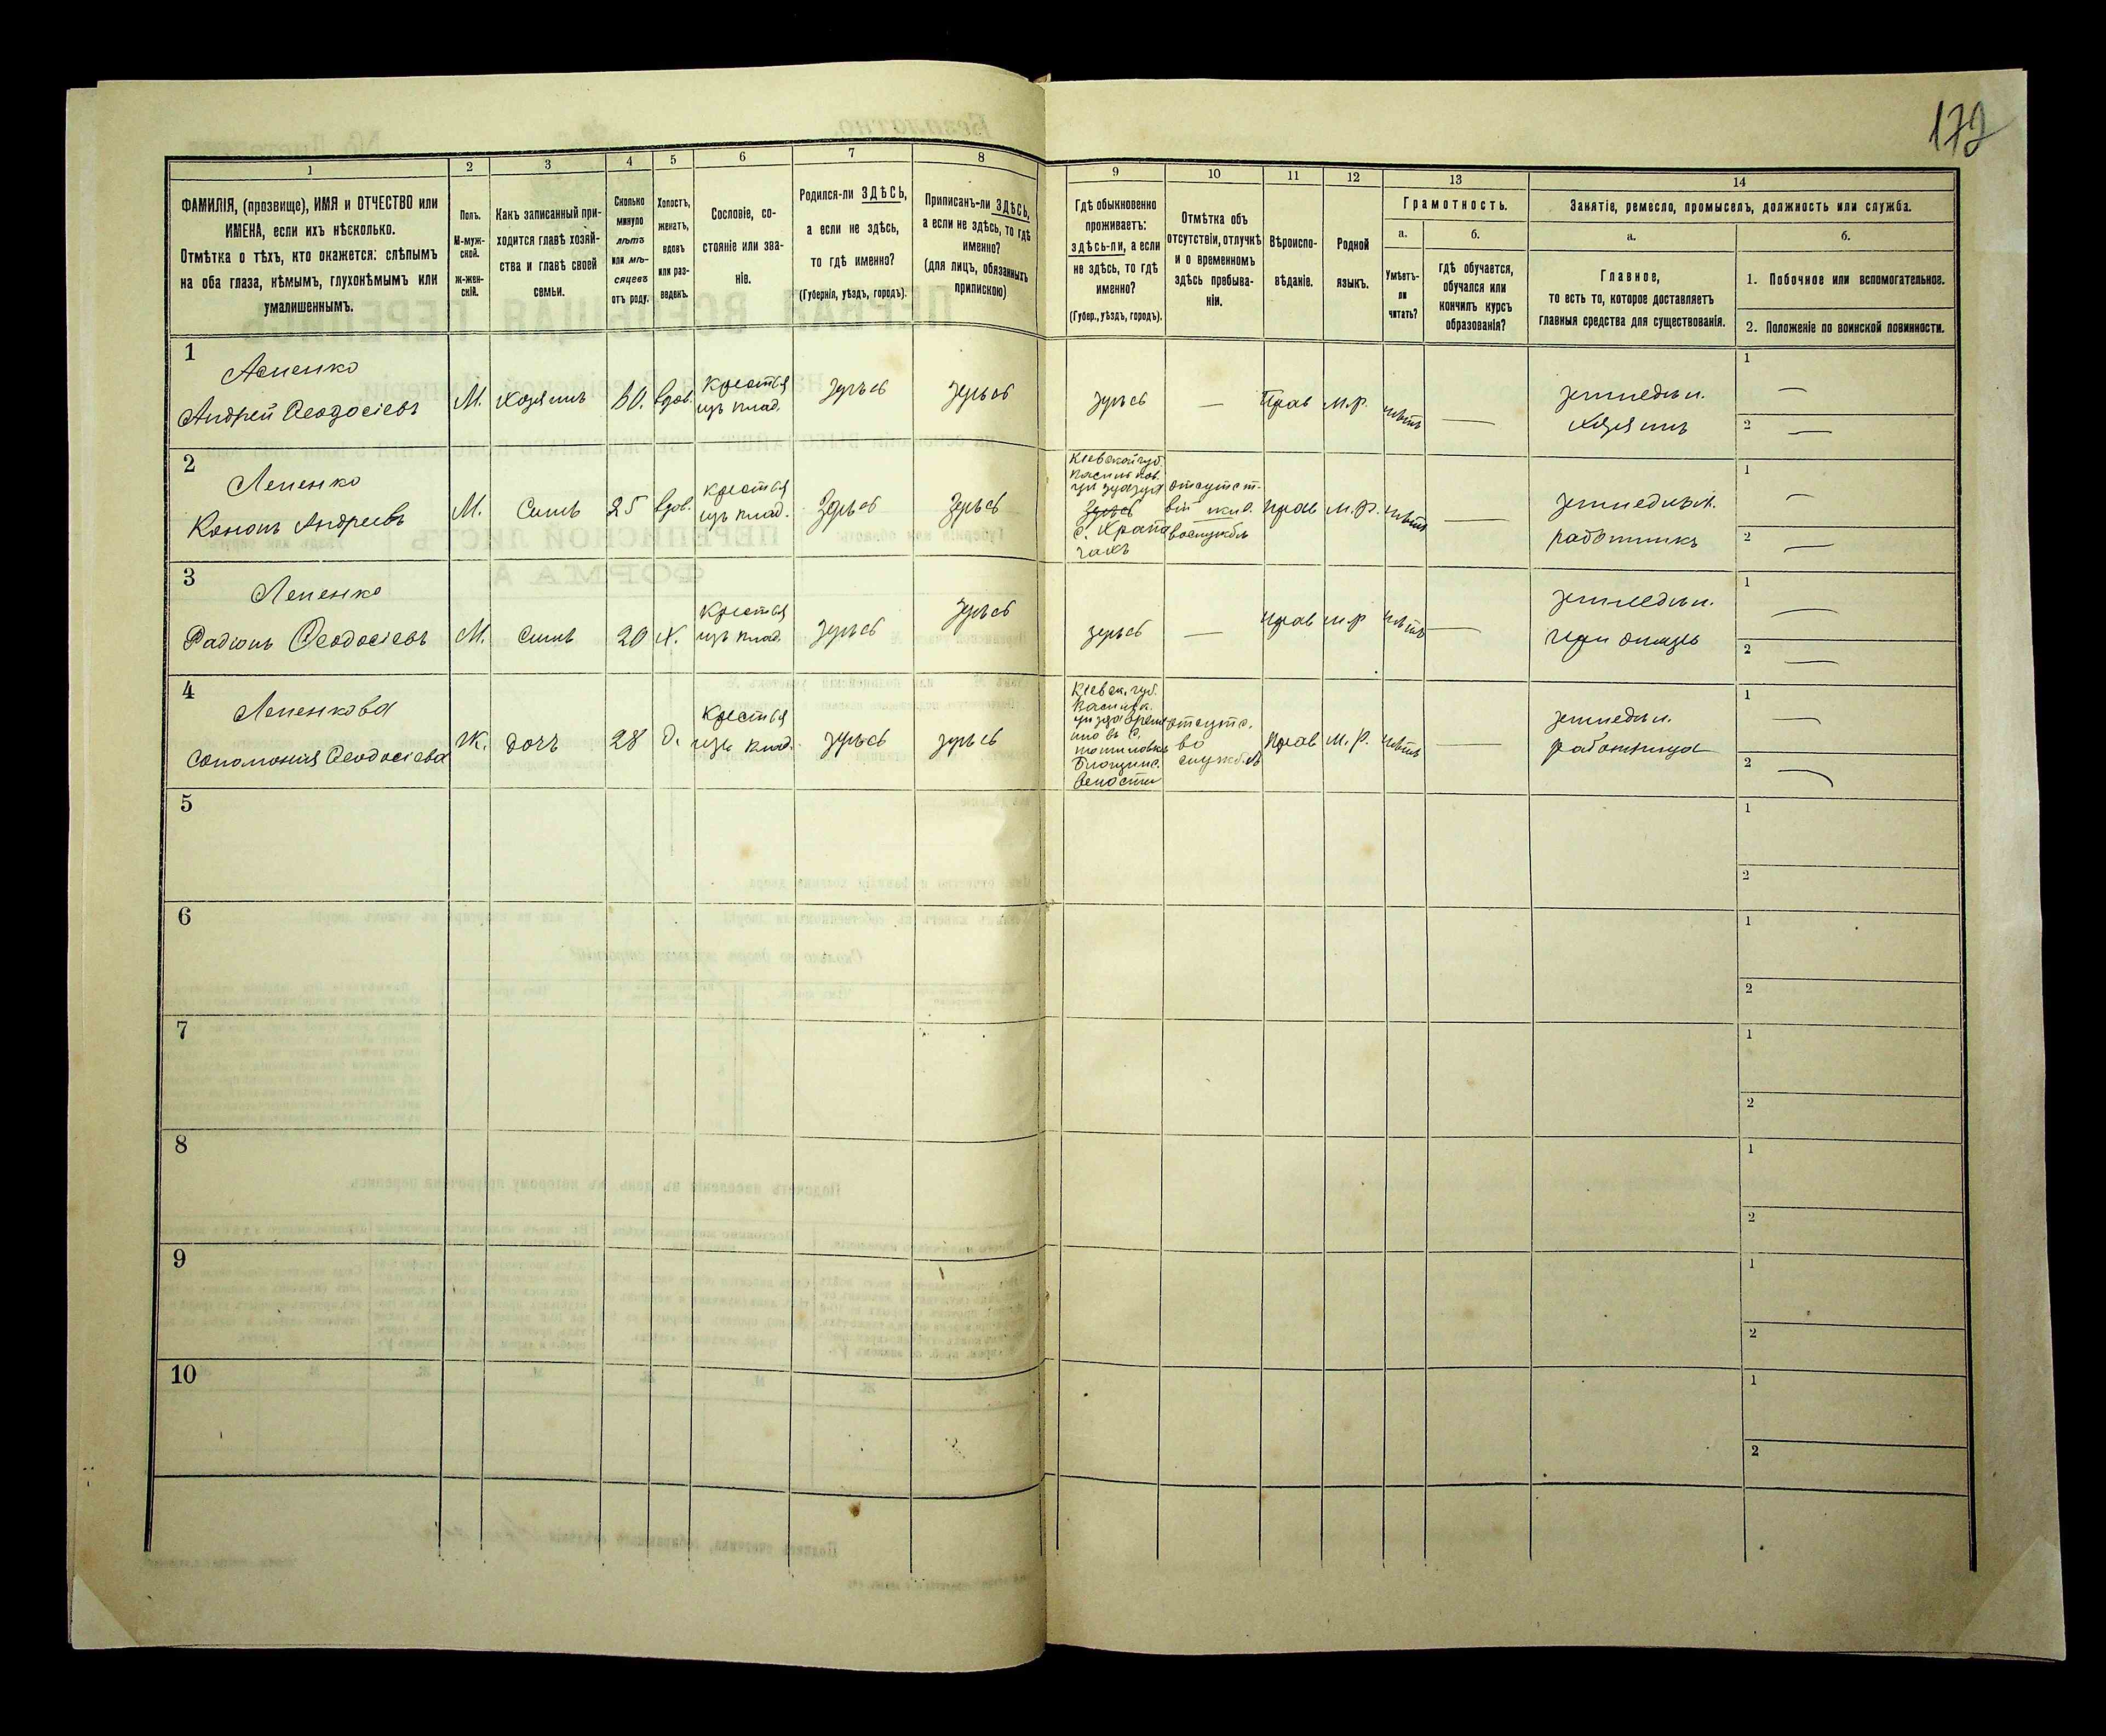 172
1
2
3
4
5
6
7
8
9
10
11
12
13
14
ФАМИЛІЯ, (прозвище), ИМЯ и ОТЧЕСТВО или
ИМЕНА, если ихъ нѣсколько.
Отмѣтка о тѣхъ, кто окажется: слѣпымъ
на оба глаза, нѣмымъ, глухонѣмымъ или
умалишеннымъ.
Полъ.
М-муж-
ской.
Ж-жен-
скій.
Какъ записанный при-
ходится главѣ хозяй-
ства и главѣ своей
семьи.
Сколько
минуло
лѣтъ
или мѣ-
сяцевъ
отъ роду.
Холостъ,
женатъ,
вдовъ
или раз-
веденъ.
Сословіе, со-
стояніе или зва-
ніе.
Родился-ли ЗДѢСЬ,
а если не здѣсь,
то гдѣ именно?
(Губернія, уѣздъ, городъ).
Приписанъ-ли ЗДѢСЬ,
а если не здѣсь, то гдѣ
именно?
(для лицъ, обязанныхъ
припискою)
Гдѣ обыкновенно
проживаетъ:
здѣсь-ли, а если
не здѣсь, то гдѣ
именно?
(Губер., уѣздъ, городъ).
Отмѣтка объ
отсутствіи, отлучкѣ
и о временномъ
здѣсь пребыва-
ніи.
Вѣроиспо-
вѣданіе.
Родной
языкъ.
Грамотность.
а.
Умѣетъ-
ли
читать?
б.
гдѣ обучается,
обучался или
кончилъ курсъ
образованія?
Занятіе, ремесло, промыселъ, должность или служба.
а.
Главное,
то есть то, которое доставляетъ
главныя средства для существованія.
б.
1. Побочное или вспомогательное.
2. Положеніе по воинской повинности.
1
Лепенко
Андрей Ѳеодосіевъ
М.
хозяинъ
60.
вдов.
крестья
изъ влад.
здѣсь
здѣсь
здѣсь
—
прав
м.р.
нѣтъ
—
земледѣл.
хозяинъ
1 —
2 —
2
Лепенко
Кононъ Андреевъ
М.
Сынъ
25
вдов.
крестья
изъ влад.
Здѣсь
Здѣсь
Кіевской губ.
Васильков.
Здѣсь
с.
отсутст-
віи
прав
м.р.
нѣтъ
—
земледѣл.
работникъ
1 —
2 —
3
Лепенко
Радіонъ Ѳеодосіевъ
М.
Сынъ
20
Х.
крестья
изъ влад.
здѣсь
здѣсь
здѣсь
—
прав
м.р
нѣтъ
—
земледѣл.
при отцѣ
1 —
2 —
4
Лепенкова
Соломонія Ѳеодосіева
Ж.
дочь
28
д.
крестья
изъ влад.
здѣсь
здѣсь
Кіевск. губ.
Васильк.
волости
отсутс.
во
службѣ
прав
м.р.
нѣтъ
—
земледѣл.
работница
1 —
2 —
5
1
2
6
1
2
7
1
2
8
1
2
9
1
2
10
1
2